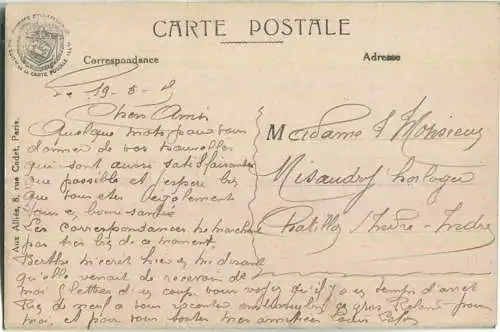 CARTE POSTALE
Correspondance
Adresse
Aux Alliés, 8, rue Cadet, Paris.
Le 19-8-
Chers Amis
Quelque mots pour vous
donner de nos nouvelles
qui sont aussi satisfaisantes
que possible et espère
que vous êtes également
en bonne santé
Les correspondances ne marchent
pas très bien de ce moment
Berthe m'écrit hier en me disant
qu'elle venait de recevoir de
moi 8 lettres d'un coup, vous voyez qu'il y a eu temps d'arrêt
Rien de
moi, et pour vous toutes mes amitiés
Madame & Monsieur
Misandry horloger
Chatillon / Indre - Indre